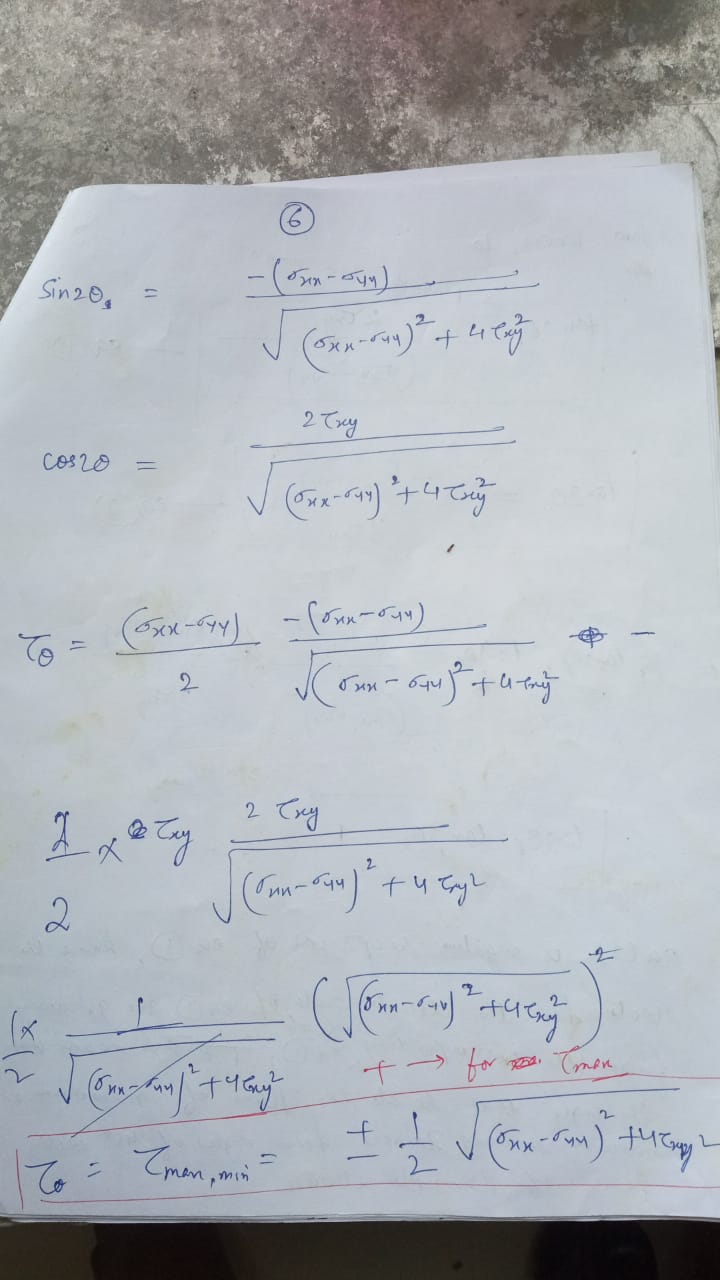 6
Sin2θ = -(σxx-σyy) / √((σxx-σyy)² + 4τxy²)
cos2θ = 2τxy / √((σxx-σyy)² + 4τxy²)
τθ = (σxx-σyy)/2 -(σxx-σyy) / √((σxx-σyy)² + 4τxy²) -
1/2 × τxy 2τxy / √((σxx-σyy)² + 4τxy²)
1/2 × 1 / √((σxx-σyy)² + 4τxy²) (√((σxx-σyy)² + 4τxy²))²
+ → for τmax
τθ = τmax,min = ± 1/2 √((σxx-σyy)² + 4τxy²)